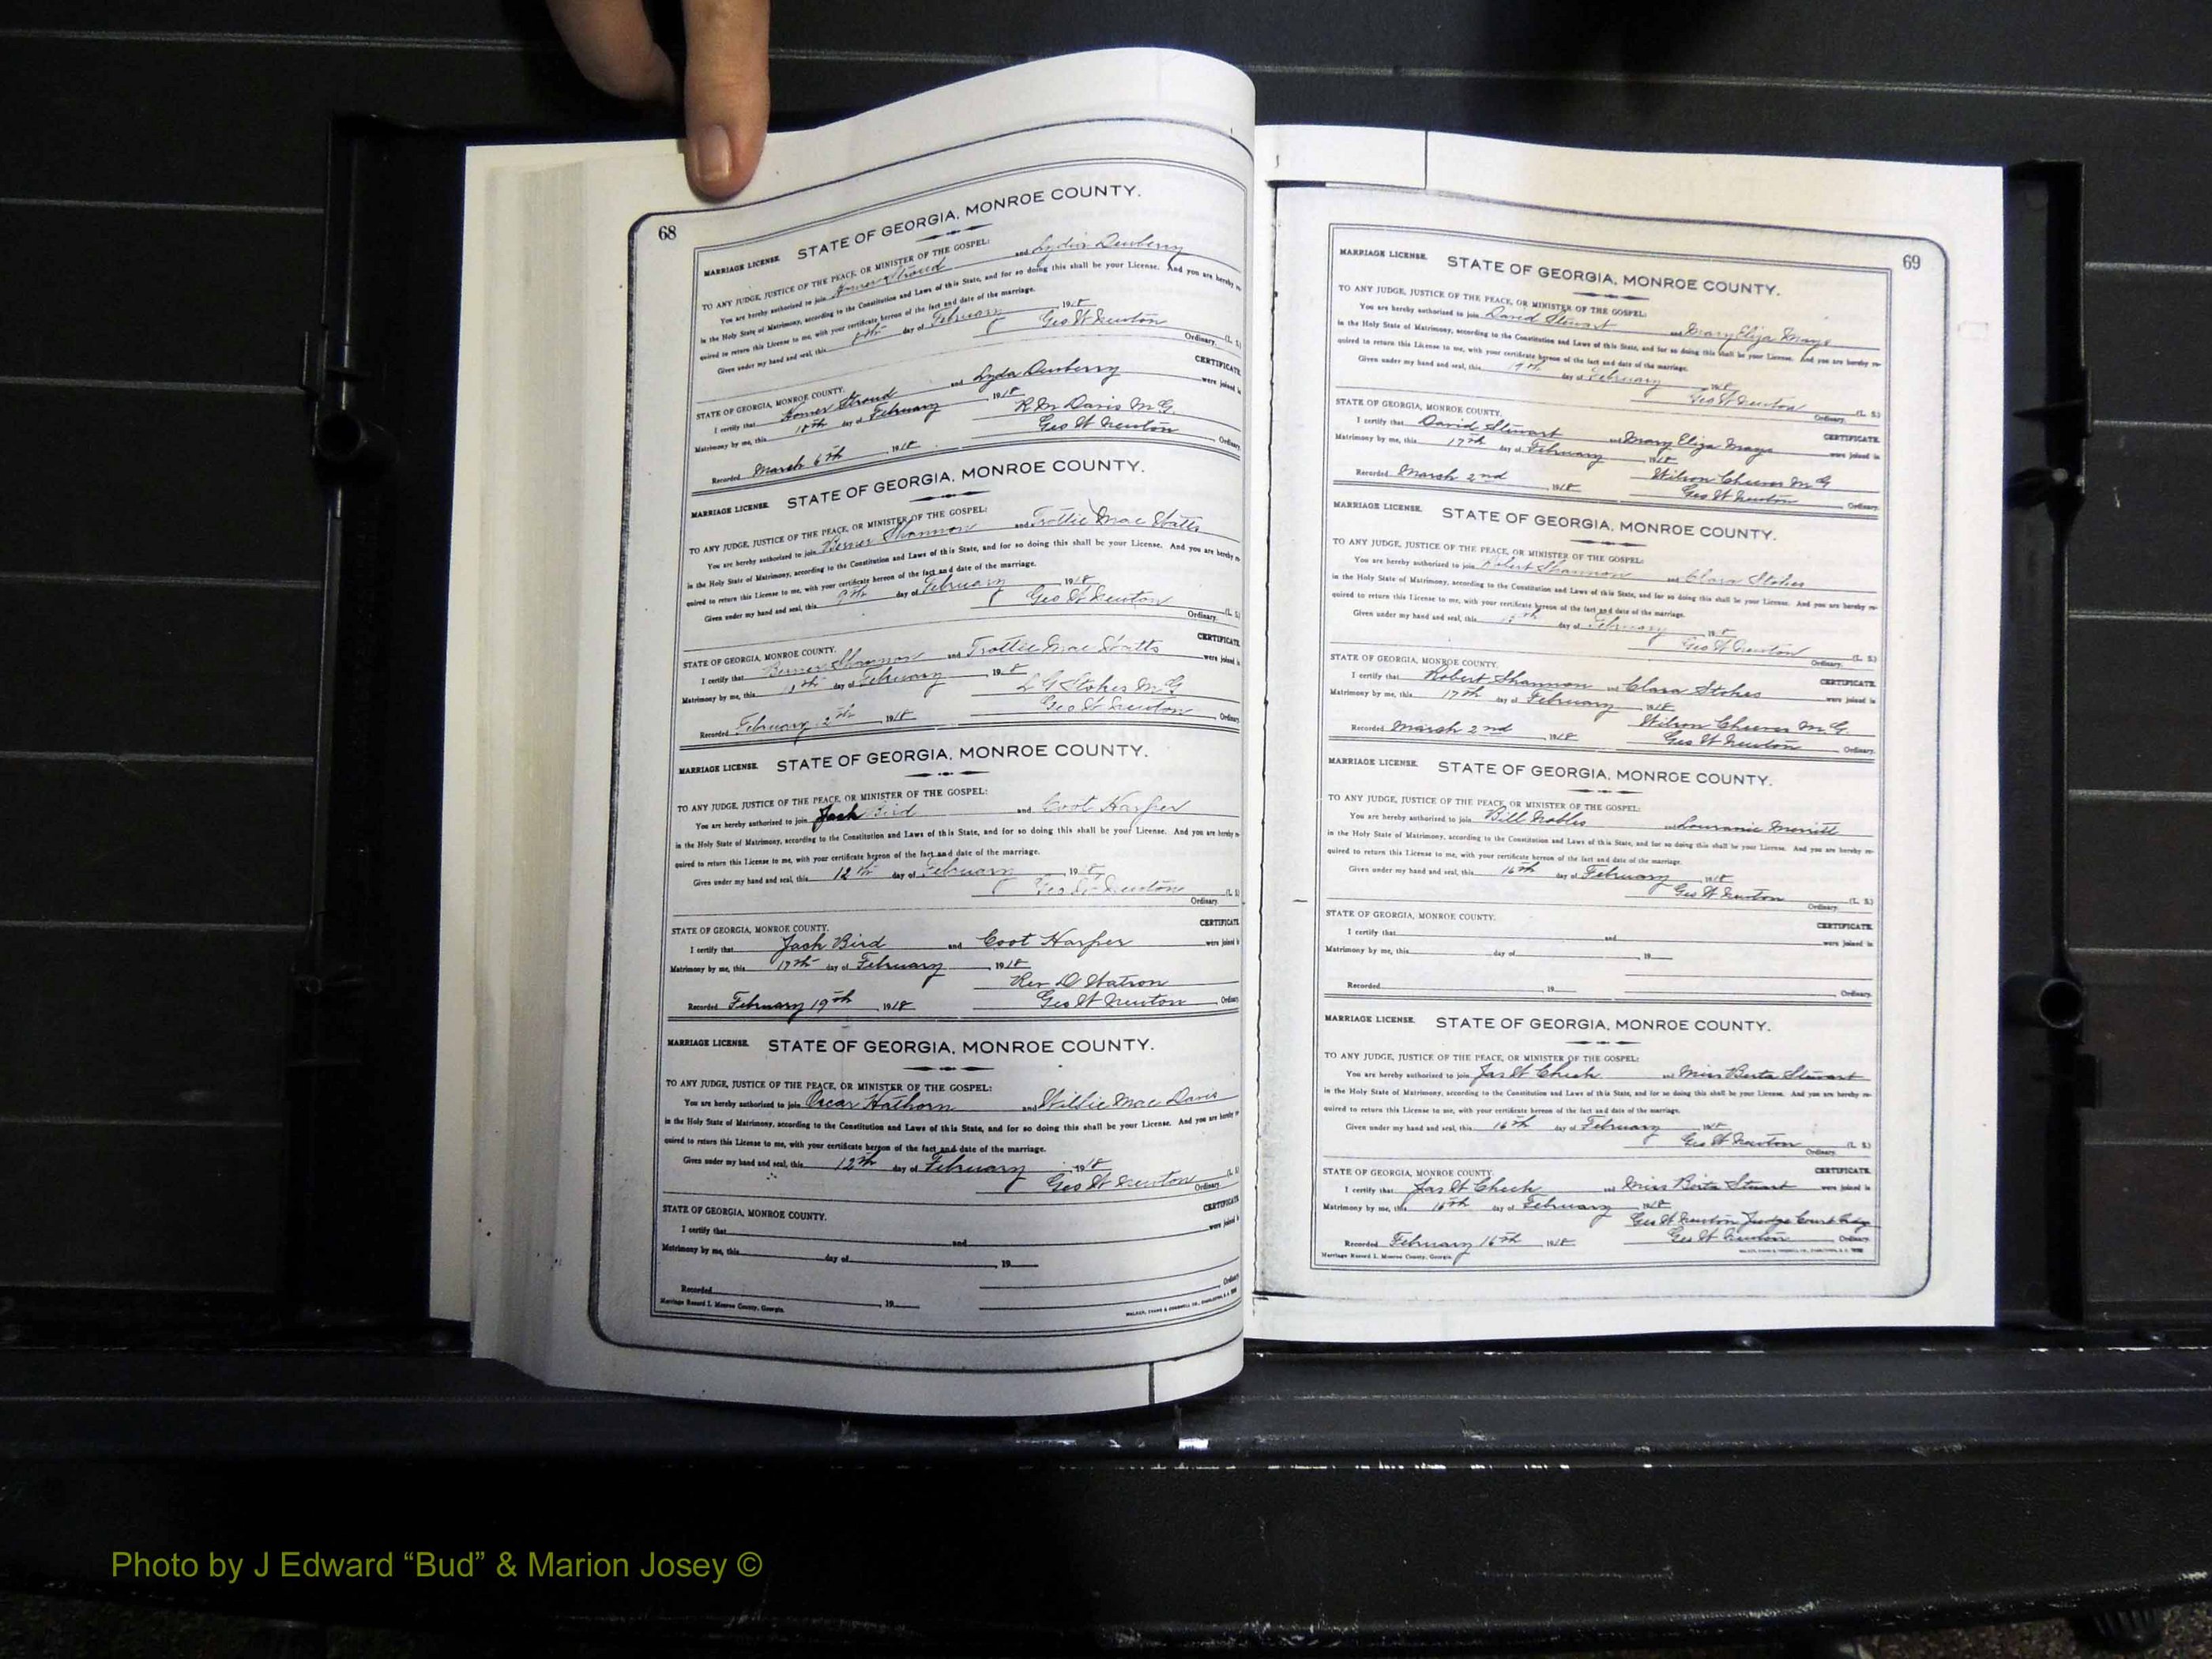 68
MARRIAGE LICENSE. STATE OF GEORGIA, MONROE COUNTY.
TO ANY JUDGE, JUSTICE OF THE PEACE, OR MINISTER OF THE GOSPEL:
You are hereby authorized to join Homer Stroud and Lydia Dewberry
in the Holy State of Matrimony, according to the Constitution and Laws of this State, and for so doing this shall be your License. And you are hereby re-
quired to return this License to me, with your certificate hereon of the fact and date of the marriage.
Given under my hand and seal, this day of February 1918
Geo W Newton (L. S.)
Ordinary.
STATE OF GEORGIA, MONROE COUNTY. CERTIFICATE.
I certify that Homer Stroud and Lyda Dewberry were joined in
Matrimony by me, this 10th day of February 1918
R M Davis M G.
Recorded March 6th 1918 Geo W Newton Ordinary
MARRIAGE LICENSE. STATE OF GEORGIA, MONROE COUNTY.
TO ANY JUDGE, JUSTICE OF THE PEACE, OR MINISTER OF THE GOSPEL:
You are hereby authorized to join Berner Shannon and Trottie Mae Watts
in the Holy State of Matrimony, according to the Constitution and Laws of this State, and for so doing this shall be your License. And you are hereby re-
quired to return this License to me, with your certificate hereon of the fact and date of the marriage.
Given under my hand and seal, this 9th day of February 1918
Geo W Newton (L. S.)
Ordinary.
STATE OF GEORGIA, MONROE COUNTY. CERTIFICATE.
I certify that Berner Shannon and Trottie Mae Watts were joined in
Matrimony by me, this day of February 1918
L G Stokes M G
Recorded February 1918 Geo W Newton Ordinary
MARRIAGE LICENSE. STATE OF GEORGIA, MONROE COUNTY.
TO ANY JUDGE, JUSTICE OF THE PEACE, OR MINISTER OF THE GOSPEL:
You are hereby authorized to join Jack Bird and Coot Harper
in the Holy State of Matrimony, according to the Constitution and Laws of this State, and for so doing this shall be your License. And you are hereby re-
quired to return this License to me, with your certificate hereon of the fact and date of the marriage.
Given under my hand and seal, this 12th day of February 1918
Geo W Newton (L. S.)
Ordinary.
STATE OF GEORGIA, MONROE COUNTY. CERTIFICATE.
I certify that Jack Bird and Coot Harper were joined in
Matrimony by me, this 17th day of February 1918
Rev D Watson
Recorded February 19th 1918 Geo W Newton Ordinary
MARRIAGE LICENSE. STATE OF GEORGIA, MONROE COUNTY.
TO ANY JUDGE, JUSTICE OF THE PEACE, OR MINISTER OF THE GOSPEL:
You are hereby authorized to join Oscar Hathorn and Willie Mae Davis
in the Holy State of Matrimony, according to the Constitution and Laws of this State, and for so doing this shall be your License. And you are hereby re-
quired to return this License to me, with your certificate hereon of the fact and date of the marriage.
Given under my hand and seal, this 12th day of February 1918
Geo W Newton (L. S.)
Ordinary.
STATE OF GEORGIA, MONROE COUNTY. CERTIFICATE
I certify that and were joined in
Matrimony by me, this day of 19
Recorded 19 Ordinary
Marriage Record L Monroe County, Georgia. WALKER, EVANS & COGSWELL CO., CHARLESTON, S. C.
69
MARRIAGE LICENSE. STATE OF GEORGIA, MONROE COUNTY.
TO ANY JUDGE, JUSTICE OF THE PEACE, OR MINISTER OF THE GOSPEL:
You are hereby authorized to join David Stewart and Mary Eliza Mays
in the Holy State of Matrimony, according to the Constitution and Laws of this State, and for so doing this shall be your License. And you are hereby re-
quired to return this License to me, with your certificate hereon of the fact and date of the marriage.
Given under my hand and seal, this day of February 1918
Geo W Newton (L. S.)
Ordinary.
STATE OF GEORGIA, MONROE COUNTY. CERTIFICATE.
I certify that David Stewart and Mary Eliza Mays were joined in
Matrimony by me, this 17th day of February 1918
Wilson Cheever M G
Recorded March 2nd 1918 Geo W Newton Ordinary.
MARRIAGE LICENSE. STATE OF GEORGIA, MONROE COUNTY.
TO ANY JUDGE, JUSTICE OF THE PEACE, OR MINISTER OF THE GOSPEL:
You are hereby authorized to join Robert Shannon and Clara Stokes
in the Holy State of Matrimony, according to the Constitution and Laws of this State, and for so doing this shall be your License. And you are hereby re-
quired to return this License to me, with your certificate hereon of the fact and date of the marriage.
Given under my hand and seal, this day of February 1918
Geo W Newton (L. S.)
Ordinary.
STATE OF GEORGIA, MONROE COUNTY. CERTIFICATE.
I certify that Robert Shannon and Clara Stokes were joined in
Matrimony by me, this 17th day of February 1918
Wilson Cheever M G.
Recorded March 2nd 1918 Geo W Newton Ordinary.
MARRIAGE LICENSE. STATE OF GEORGIA, MONROE COUNTY.
TO ANY JUDGE, JUSTICE OF THE PEACE, OR MINISTER OF THE GOSPEL:
You are hereby authorized to join Bill Nobles and Louranie Merritt
in the Holy State of Matrimony, according to the Constitution and Laws of this State, and for so doing this shall be your License. And you are hereby re-
quired to return this License to me, with your certificate hereon of the fact and date of the marriage.
Given under my hand and seal, this 16th day of February 1918
Geo W Newton (L. S.)
Ordinary.
STATE OF GEORGIA, MONROE COUNTY. CERTIFICATE.
I certify that and were joined in
Matrimony by me, this day of 19
Recorded 19 Ordinary.
MARRIAGE LICENSE. STATE OF GEORGIA, MONROE COUNTY.
TO ANY JUDGE, JUSTICE OF THE PEACE, OR MINISTER OF THE GOSPEL:
You are hereby authorized to join Jas W Cheek and Miss Berta Stewart
in the Holy State of Matrimony, according to the Constitution and Laws of this State, and for so doing this shall be your License. And you are hereby re-
quired to return this License to me, with your certificate hereon of the fact and date of the marriage.
Given under my hand and seal, this 16th day of February 1918
Geo W Newton (L. S.)
Ordinary.
STATE OF GEORGIA, MONROE COUNTY. CERTIFICATE.
I certify that Jas W Cheek and Miss Berta Stewart were joined in
Matrimony by me, this 16th day of February 1918
Geo W Newton Judge Court Ordy
Recorded February 16th 1918 Geo W Newton Ordinary.
Marriage Record L Monroe County, Georgia. WALKER, EVANS & COGSWELL CO., CHARLESTON, S. C.
Photo by J Edward “Bud” & Marion Josey ©